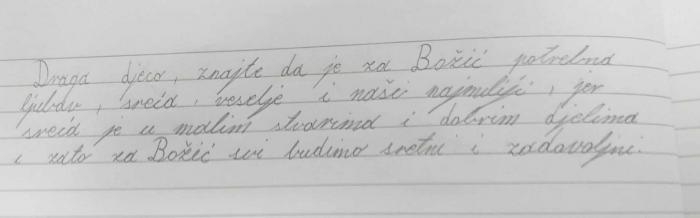 Draga djeco, znajte da je za Božić potrebna
ljubav, sreća, veselje i naši najmiliji, jer
sreća je u malim stvarima i dobrim djelima
i zato za Božić svi budimo sretni i zadovoljni.